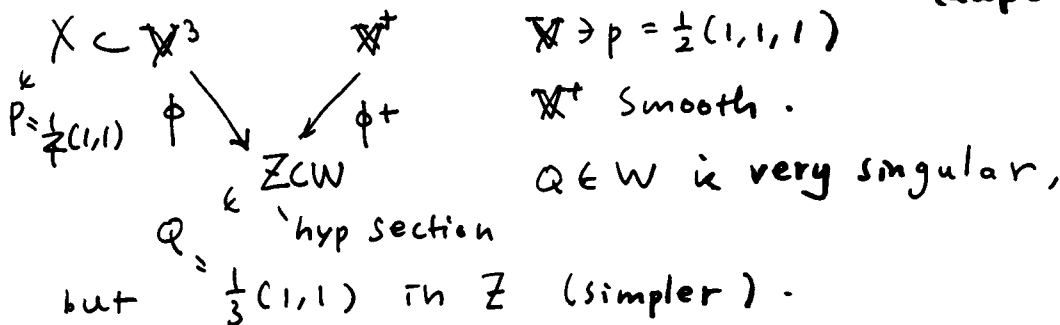 X ⊂ 𝕏³ 𝕏⁺ 𝕏 ∋ p = ½(1,1,1)
P = ¼(1,1) φ φ⁺ 𝕏⁺ smooth.
Z ⊂ W Q ∈ W is very singular,
Q hyp section
= but ⅓(1,1) in Z (simpler).